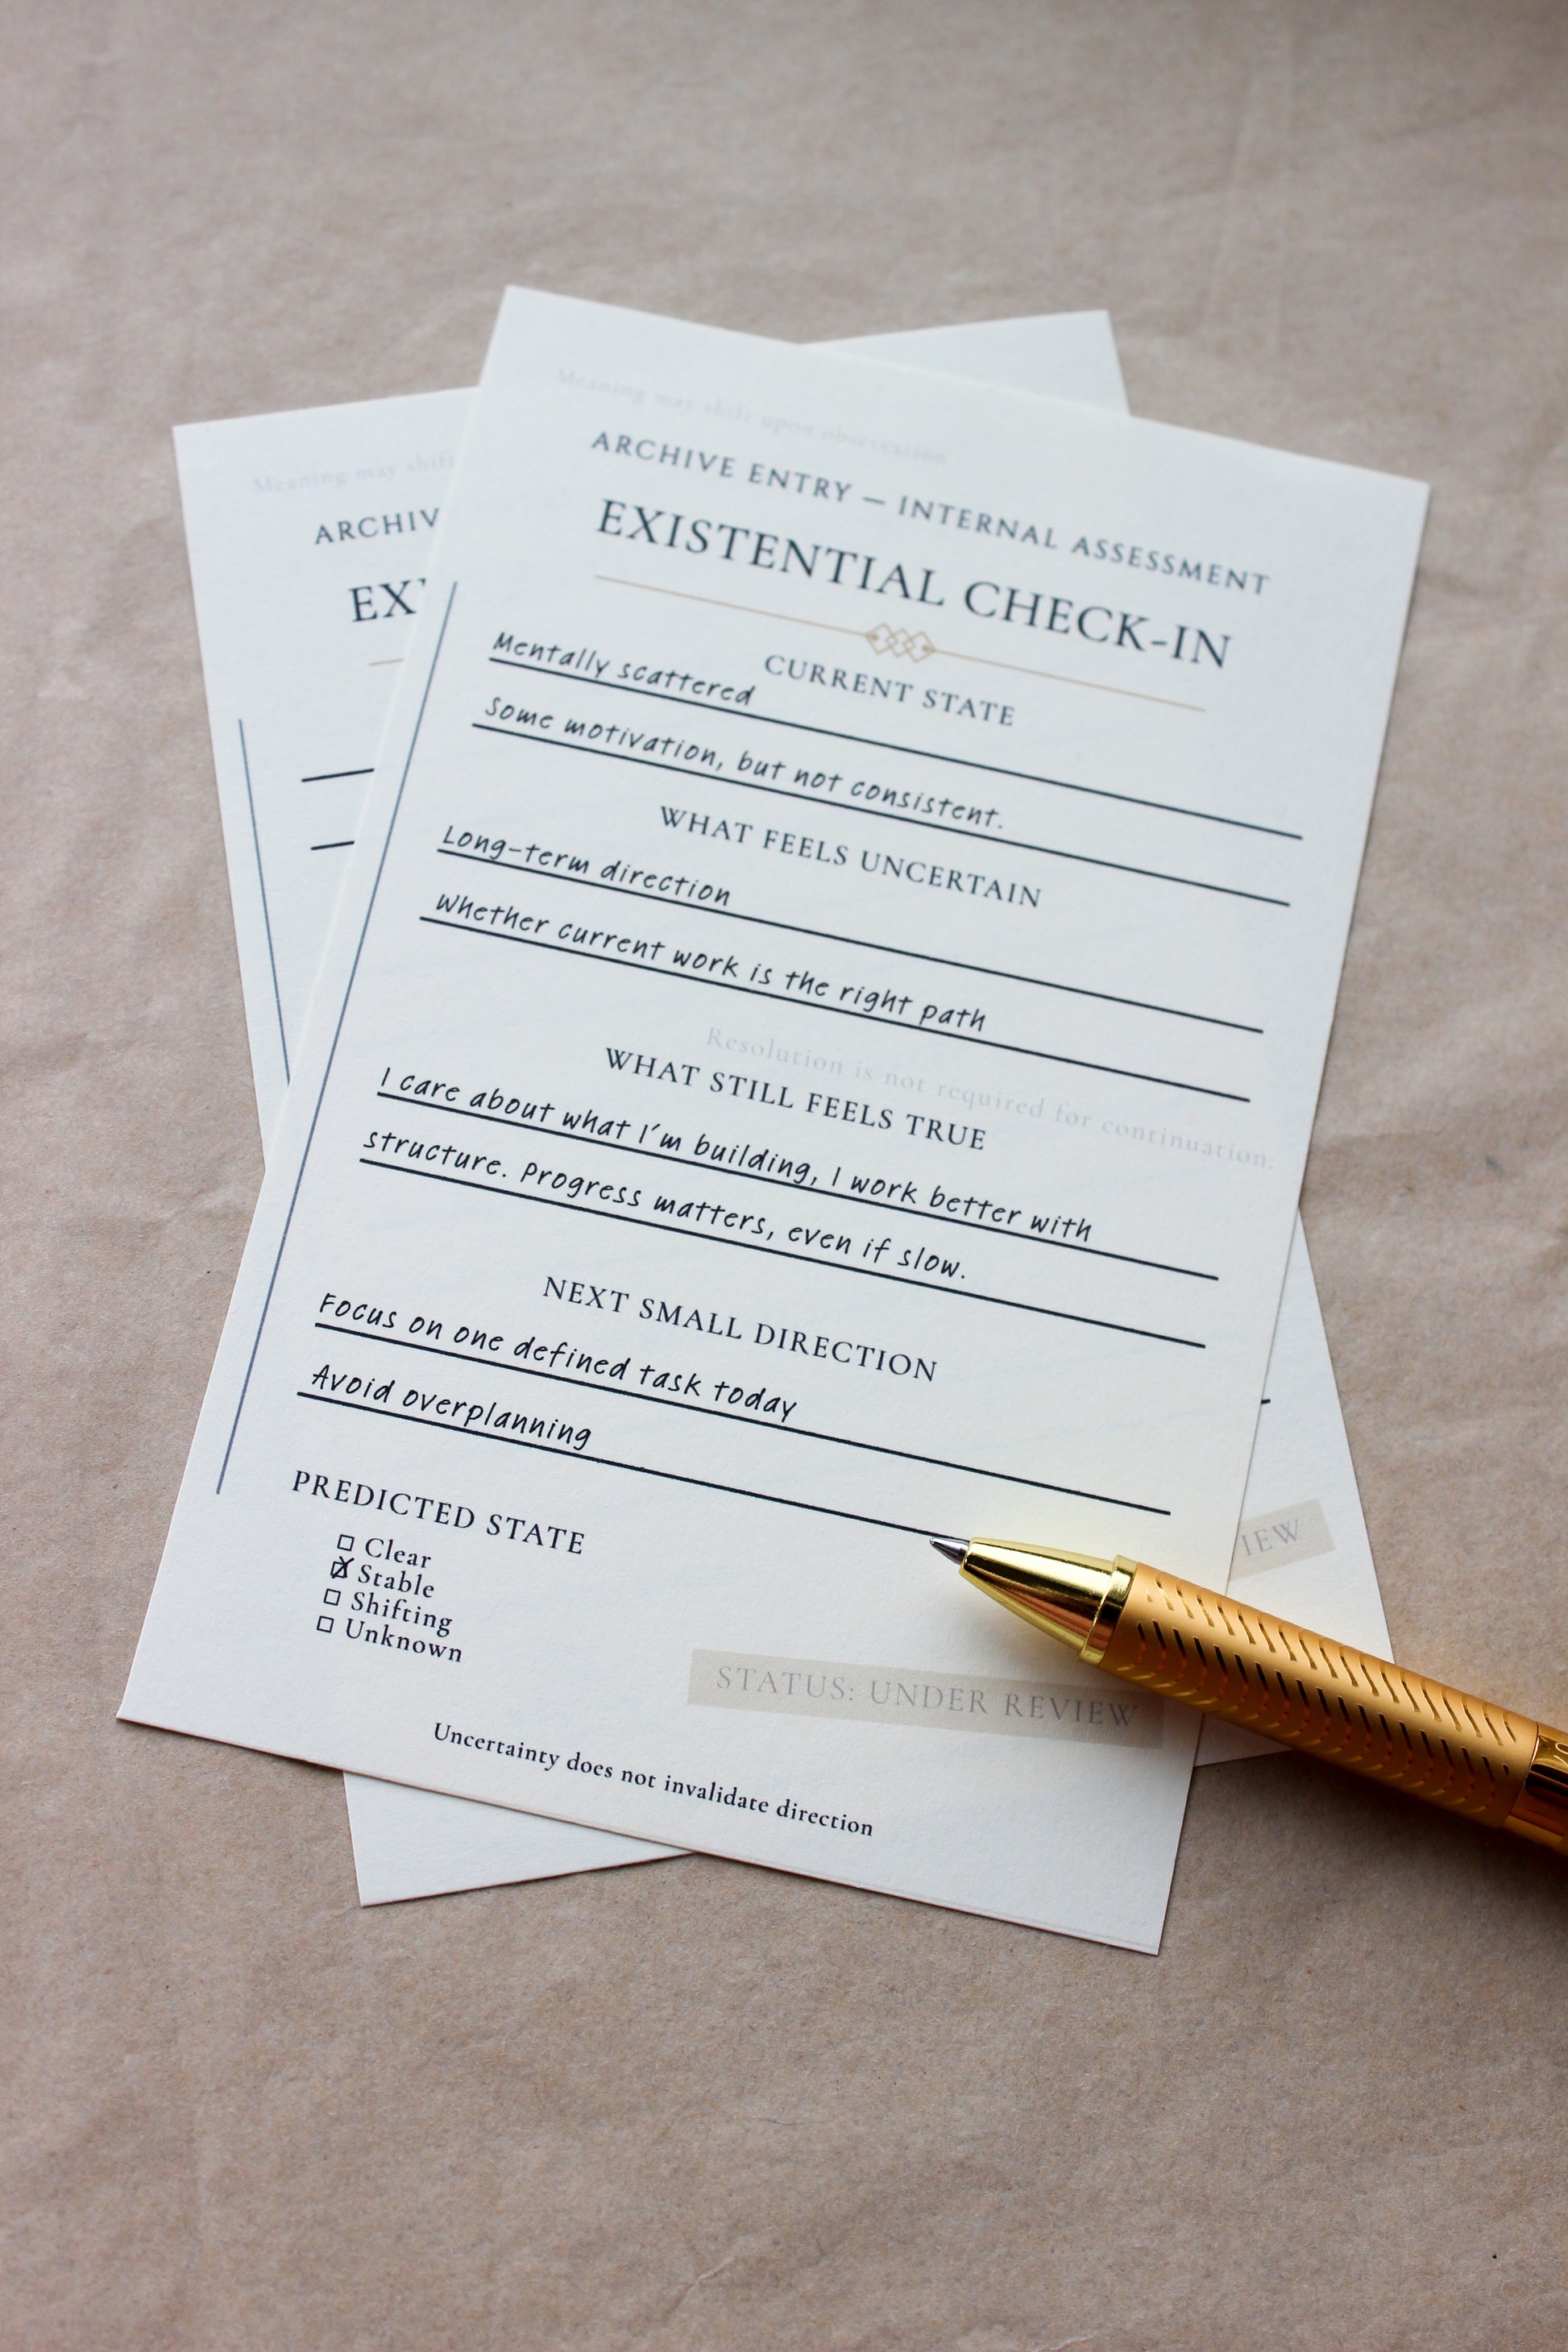 Meaning may shift upon observation
ARCHIVE ENTRY — INTERNAL ASSESSMENT
EXISTENTIAL CHECK-IN
CURRENT STATE
Mentally scattered
Some motivation, but not consistent.
WHAT FEELS UNCERTAIN
Long-term direction
Whether current work is the right path
Resolution is not required for continuation.
WHAT STILL FEELS TRUE
I care about what I'm building, I work better with
structure. Progress matters, even if slow.
NEXT SMALL DIRECTION
Focus on one defined task today
Avoid overplanning
PREDICTED STATE
☐ Clear
☒ Stable
☐ Shifting
☐ Unknown
STATUS: UNDER REVIEW
Uncertainty does not invalidate direction
Meaning may shift
ARCHIV
EX
IEW